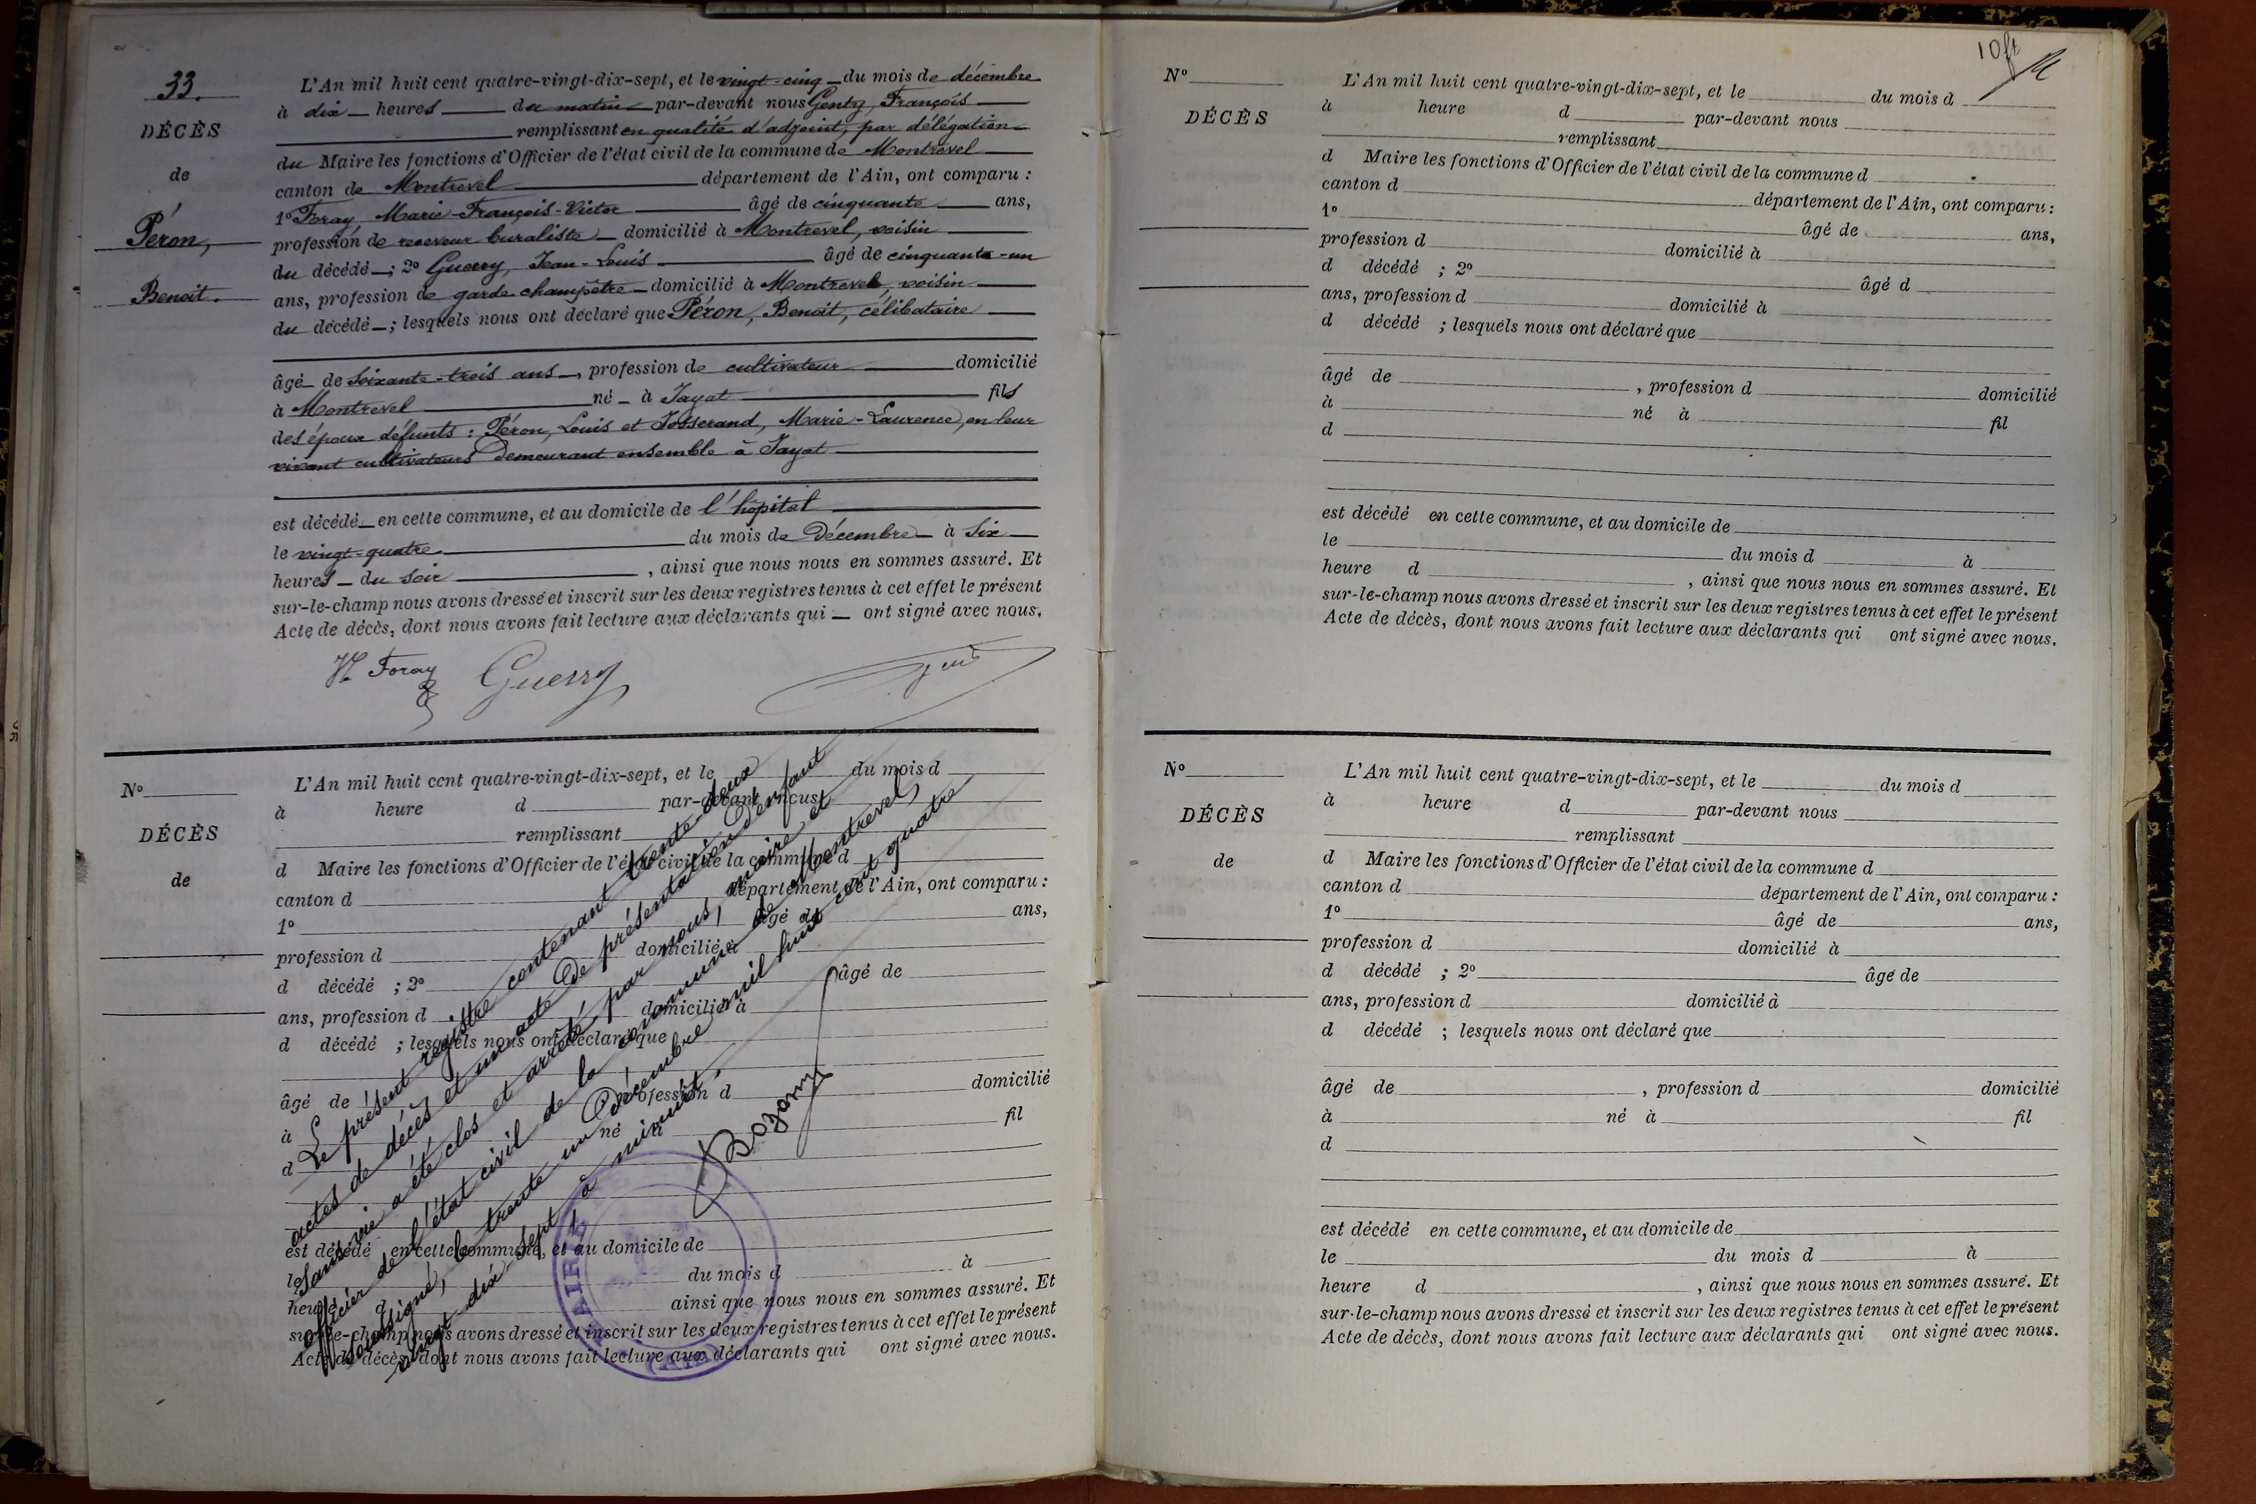 33.
DÉCÈS
de
Péron,
Benoit.
L'An mil huit cent quatre-vingt-dix-sept, et le vingt-cinq du mois de décembre
à dix heures du matin par-devant nous Gentz, François
remplissant en qualité d'adjoint, par délégation
du Maire les fonctions d'Officier de l'état civil de la commune de Montrevel
canton de Montrevel département de l'Ain, ont comparu :
1º Foray Marie-François-Victor âgé de cinquante ans,
profession de receveur buraliste domicilié à Montrevel, voisin
du décédé ; 2º Guerry, Jean-Louis âgé de cinquante-un
ans, profession de garde champêtre domicilié à Montrevel, voisin
du décédé ; lesquels nous ont déclaré que Péron, Benoit, célibataire
âgé de soixante-trois ans, profession de cultivateur domicilié
à Montrevel né à Jayat fils
des époux défunts : Péron, Louis et Josserand, Marie-Laurence, en leur
vivant cultivateurs demeurant ensemble à Jayat
est décédé en cette commune, et au domicile de l'hôpital
le vingt-quatre du mois de Décembre à six
heures du soir, ainsi que nous nous en sommes assuré. Et
sur-le-champ nous avons dressé et inscrit sur les deux registres tenus à cet effet le présent
Acte de décès, dont nous avons fait lecture aux déclarants qui ont signé avec nous.
V. Foray Guerry
Nº
DÉCÈS
de
L'An mil huit cent quatre-vingt-dix-sept, et le du mois d
à heure d par-devant nous
remplissant
d Maire les fonctions d'Officier de l'état civil de la commune d
canton d département de l'Ain, ont comparu :
1º âgé de ans,
profession d domicilié à
d décédé ; 2º âgé de
ans, profession d domicilié à
d décédé ; lesquels nous ont déclaré que
âgé de profession d domicilié
à né à fil
d
est décédé en cette commune, et au domicile de
le du mois d à
heure d ainsi que nous nous en sommes assuré. Et
sur-le-champ nous avons dressé et inscrit sur les deux registres tenus à cet effet le présent
Acte de décès, dont nous avons fait lecture aux déclarants qui ont signé avec nous.
Le présent registre contenant trente-deux
actes de décès et un acte de présentation d'enfant
sans vie a été clos et arrêté par nous, maire et
officier de l'état civil de la commune de Montrevel,
soussigné, le trente un Décembre mil huit cent quatre
vingt-dix-sept, à minuit.
Bozonny
MAIRIE
(AIN)
10 ft
Nº
DÉCÈS
L'An mil huit cent quatre-vingt-dix-sept, et le du mois d
à heure d par-devant nous
remplissant
d Maire les fonctions d'Officier de l'état civil de la commune d
canton d département de l'Ain, ont comparu :
1º âgé de ans,
profession d domicilié à
d décédé ; 2º âgé d
ans, profession d domicilié à
d décédé ; lesquels nous ont déclaré que
âgé de , profession d domicilié
à né à fil
d
est décédé en cette commune, et au domicile de
le du mois d à
heure d , ainsi que nous nous en sommes assuré. Et
sur-le-champ nous avons dressé et inscrit sur les deux registres tenus à cet effet le présent
Acte de décès, dont nous avons fait lecture aux déclarants qui ont signé avec nous.
Nº
DÉCÈS
de
L'An mil huit cent quatre-vingt-dix-sept, et le du mois d
à heure d par-devant nous
remplissant
d Maire les fonctions d'Officier de l'état civil de la commune d
canton d département de l'Ain, ont comparu :
1º âgé de ans,
profession d domicilié à
d décédé ; 2º âge de
ans, profession d domicilié à
d décédé ; lesquels nous ont déclaré que
âgé de , profession d domicilié
à né à fil
d
est décédé en cette commune, et au domicile de
le du mois d à
heure d , ainsi que nous nous en sommes assuré. Et
sur-le-champ nous avons dressé et inscrit sur les deux registres tenus à cet effet le présent
Acte de décès, dont nous avons fait lecture aux déclarants qui ont signé avec nous.